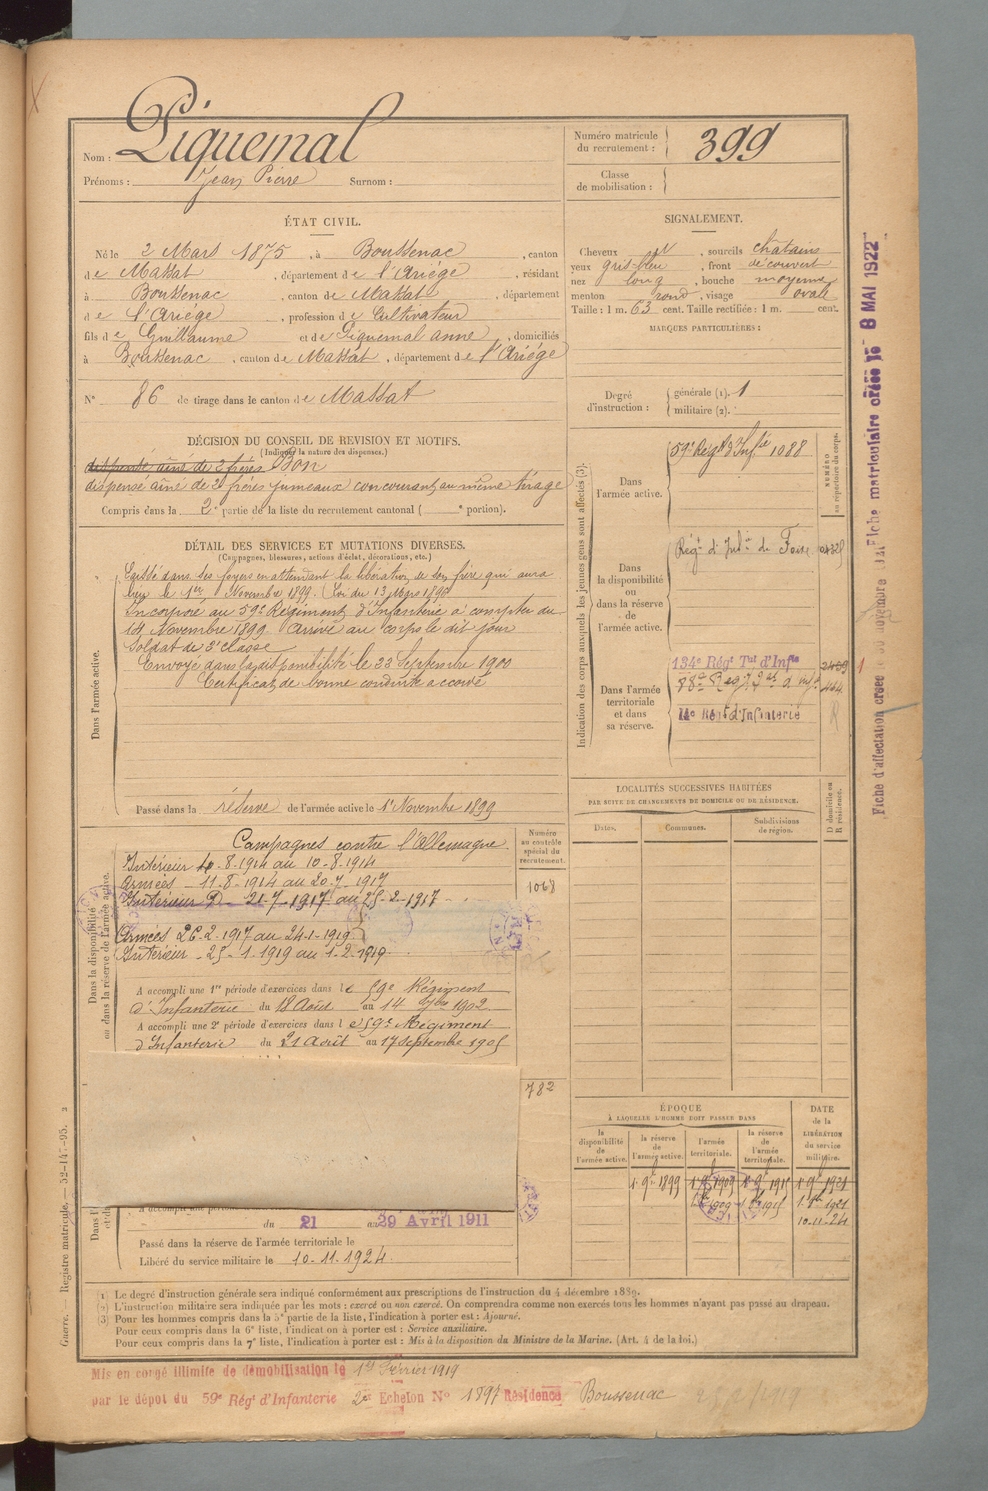 Nom : Piquemal
Prénoms : Jean Pierre Surnom :
Numéro matricule du recrutement : 399
Classe de mobilisation :
ÉTAT CIVIL.
Né le 2 Mars 1875, à Boussenac, canton
de Massat, département de l'Ariége, résidant
à Boussenac, canton de Massat, département
de l'Ariége, profession de Cultivateur
fils de Guillaume et de Piquemal anne, domiciliés
à Boussenac, canton de Massat, département de l'Ariége
N° 86 de tirage dans le canton de Massat
SIGNALEMENT.
Cheveux , sourcils chatains
yeux gris-bleu, front découvert
nez long, bouche moyenne
menton rond, visage ovale
Taille : 1 m. 63 cent. Taille rectifiée : 1 m. cent.
MARQUES PARTICULIÈRES :
Degré d'instruction : générale (1). 1
militaire (2).
DÉCISION DU CONSEIL DE REVISION ET MOTIFS.
(Indiquer la nature des dispenses.)
dispensé aîné de 2 frères Bon
dispensé aîné de 2 frères jumeaux concourant au même tirage
Compris dans la 2e partie de la liste du recrutement cantonal ( e portion).
DÉTAIL DES SERVICES ET MUTATIONS DIVERSES.
(Campagnes, blessures, actions d'éclat, décorations, etc.)
Dans l'armée active.
Laissé dans ses foyers en attendant la libération de son frère qui aura
lieu le 1er Novembre 1899. (Loi du 13 Mars 1896
Incorporé au 59e Régiment d'Infanterie à compter du
14 Novembre 1899 Arrivé au corps le dit jour
Soldat de 2e classe
Envoyé dans la disponibilité le 22 Septembre 1900
Certificat de bonne conduite accordé
Passé dans la réserve de l'armée active le 1er Novembre 1899
Indication des corps auxquels les jeunes gens sont affectés (3).
NUMÉRO au répertoire du corps.
Dans l'armée active.
59e Régt d'Infie 1088
Dans la disponibilité ou dans la réserve de l'armée active.
Régt d'Infie de Foix
Dans l'armée territoriale et dans sa réserve.
134e Régt Tal d'Infie
14e Régt d'Infanterie
LOCALITÉS SUCCESSIVES HABITÉES
PAR SUITE DE CHANGEMENTS DE DOMICILE OU DE RÉSIDENCE.
Dates. Communes. Subdivisions de région. D domicile ou R résidence.
Dans la disponibilité ou dans la réserve de l'armée active.
Numéro au contrôle spécial du recrutement.
1068
Campagnes contre l'Allemagne
Intérieur 4-8-1914 au 10-8-1914
Armées - 11-8-1914 au 20-7-1917
Intérieur D - 21-7-1917 au 25-2-1917
Armées 26-2-1917 au 24-1-1919
Intérieur - 25-1-1919 au 1-2-1919
A accompli une 1re période d'exercices dans le 59e Régiment
d'Infanterie du 18 Août au 14 7bre 1902
A accompli une 2e période d'exercices dans le 59e Régiment
d'Infanterie du 21 Août au 17 Septembre 1905
782
du 21 au 29 Avril 1911
Passé dans la réserve de l'armée territoriale le
Libéré du service militaire le 10-11-1924
ÉPOQUE
À LAQUELLE L'HOMME DOIT PASSER DANS
la disponibilité de l'armée active. la réserve de l'armée active. l'armée territoriale. la réserve de l'armée territoriale.
DATE de la LIBÉRATION du service militaire.
1er 9bre 1899
10-11-24
(1) Le degré d'instruction générale sera indiqué conformément aux prescriptions de l'instruction du 4 décembre 1889.
(2) L'instruction militaire sera indiquée par les mots : exercé ou non exercé. On comprendra comme non exercés tous les hommes n'ayant pas passé au drapeau.
(3) Pour les hommes compris dans la 5e partie de la liste, l'indication à porter est : Ajourné.
Pour ceux compris dans la 6e liste, l'indication à porter est : Service auxiliaire.
Pour ceux compris dans la 7e liste, l'indication à porter est : Mis à la disposition du Ministre de la Marine. (Art. 4 de la loi.)
Mis en congé illimité de démobilisation le 1er Février 1919
par le dépôt du 59e Régt d'Infanterie 2e Echelon N° 1897 Résidence Boussenac
Guerre. — Registre matricule. — 52-147-95. 2
Fiche d'affectation créée le novembre Fiche matriculaire créée le 8 MAI 1922